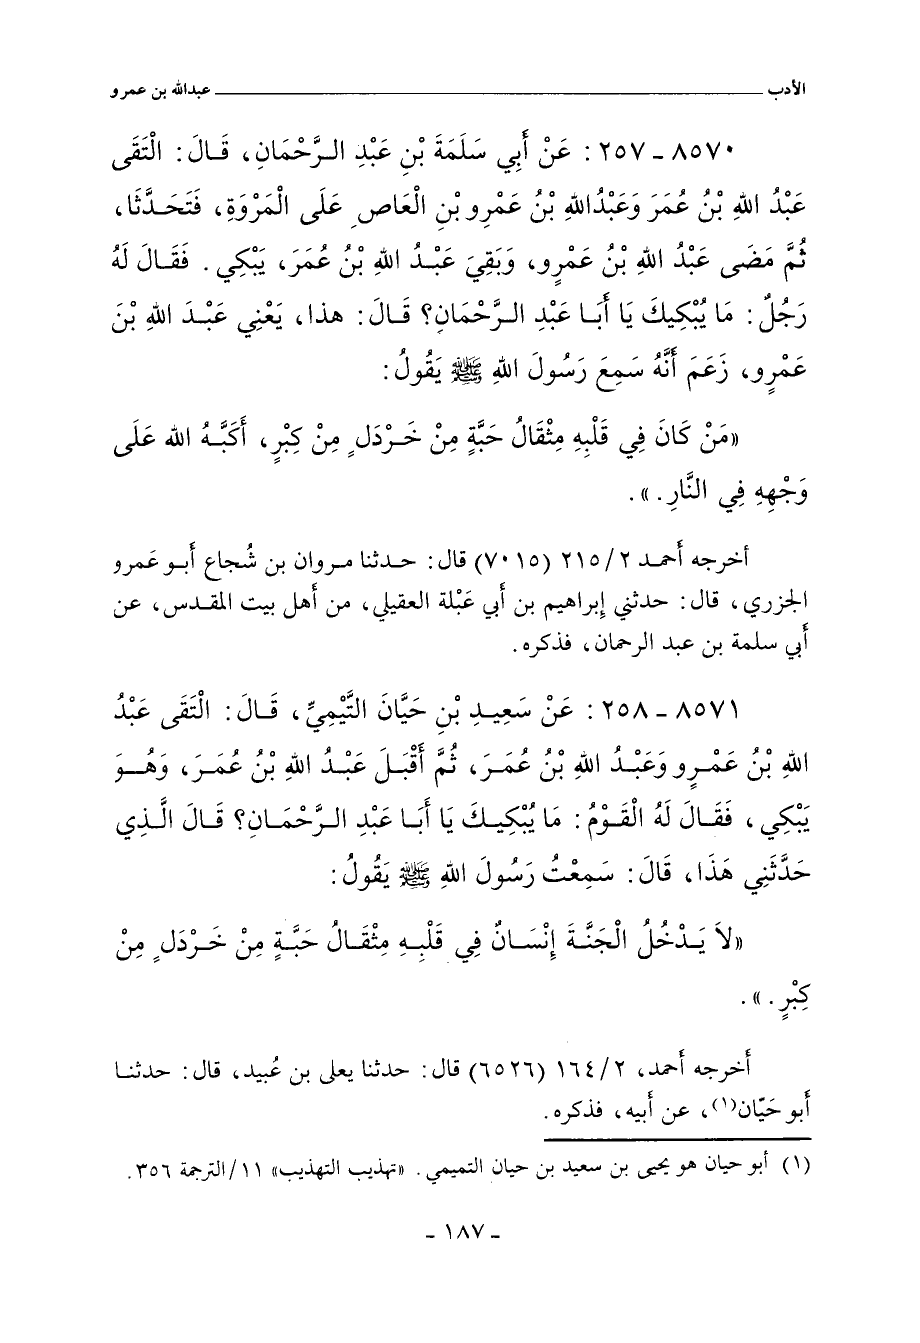 الأدب ــــــــــ عبدالله بن عمرو
٨٥٧٠ - ٢٥٧ : عَنْ أَبِي سَلَمَةَ بْنِ عَبْدِ الرَّحْمَانِ، قَالَ: الْتَقَى
عَبْدُ اللهِ بْنُ عُمَرَ وَعَبْدُاللهِ بْنُ عَمْرِو بْنِ الْعَاصِ عَلَى الْمَرْوَةِ، فَتَحَدَّثَا،
ثُمَّ مَضَى عَبْدُ اللهِ بْنُ عَمْرٍو، وَبَقِيَ عَبْدُ اللهِ بْنُ عُمَرَ، يَبْكِي. فَقَالَ لَهُ
رَجُلٌ: مَا يُبْكِيكَ يَا أَبَا عَبْدِ الرَّحْمَانِ؟ قَالَ: هذا، يَعْنِي عَبْدَ اللهِ بْنَ
عَمْرٍو، زَعَمَ أَنَّهُ سَمِعَ رَسُولَ اللهِ ﷺ يَقُولُ:
«مَنْ كَانَ فِي قَلْبِهِ مِثْقَالُ حَبَّةٍ مِنْ خَرْدَلٍ مِنْ كِبْرٍ، أَكَبَّهُ اللهُ عَلَى
وَجْهِهِ فِي النَّارِ.».
أخرجه أَحمد ٢/٢١٥ (٧٠١٥) قال: حدثنا مروان بن شُجاع أَبو عَمرو
الجزري، قال: حدثني إِبراهيم بن أَبي عَبْلة العقيلي، من أَهل بيت المقدس، عن
أَبي سلمة بن عبد الرحمان، فذكره.
٨٥٧١ - ٢٥٨ : عَنْ سَعِيدِ بْنِ حَيَّانَ التَّيْمِيِّ، قَالَ: الْتَقَى عَبْدُ
اللهِ بْنُ عَمْرٍو وَعَبْدُ اللهِ بْنُ عُمَرَ، ثُمَّ أَقْبَلَ عَبْدُ اللهِ بْنُ عُمَرَ، وَهُوَ
يَبْكِي، فَقَالَ لَهُ الْقَوْمُ: مَا يُبْكِيكَ يَا أَبَا عَبْدِ الرَّحْمَانِ؟ قَالَ الَّذِي
حَدَّثَنِي هَذَا، قَالَ: سَمِعْتُ رَسُولَ اللهِ ﷺ يَقُولُ:
«لاَ يَدْخُلُ الْجَنَّةَ إِنْسَانٌ فِي قَلْبِهِ مِثْقَالُ حَبَّةٍ مِنْ خَرْدَلٍ مِنْ
كِبْرٍ.».
أخرجه أَحمد، ٢/١٦٤ (٦٥٢٦) قال: حدثنا يعلى بن عُبيد، قال: حدثنا
أَبو حَيّان(١)، عن أَبيه، فذكره.
(١) أبو حيان هو يحيى بن سعيد بن حيان التميمي. «تهذيب التهذيب» ١١/الترجمة ٣٥٦.
- ١٨٧ -